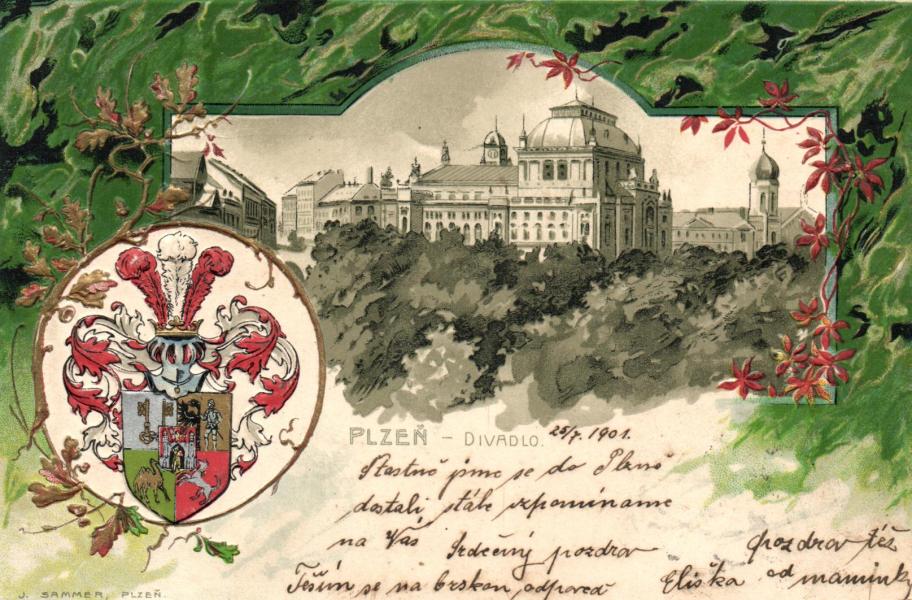 PLZEŇ – DIVADLO. 25/7. 1901.
Šťastně jsme se do Plzně
dostali stále vzpomínáme
na Vás Srdečný pozdrav
pozdrav též
Těším se na brzkou odpověď
Eliška od maminky
J. SAMMER, PLZEŇ.